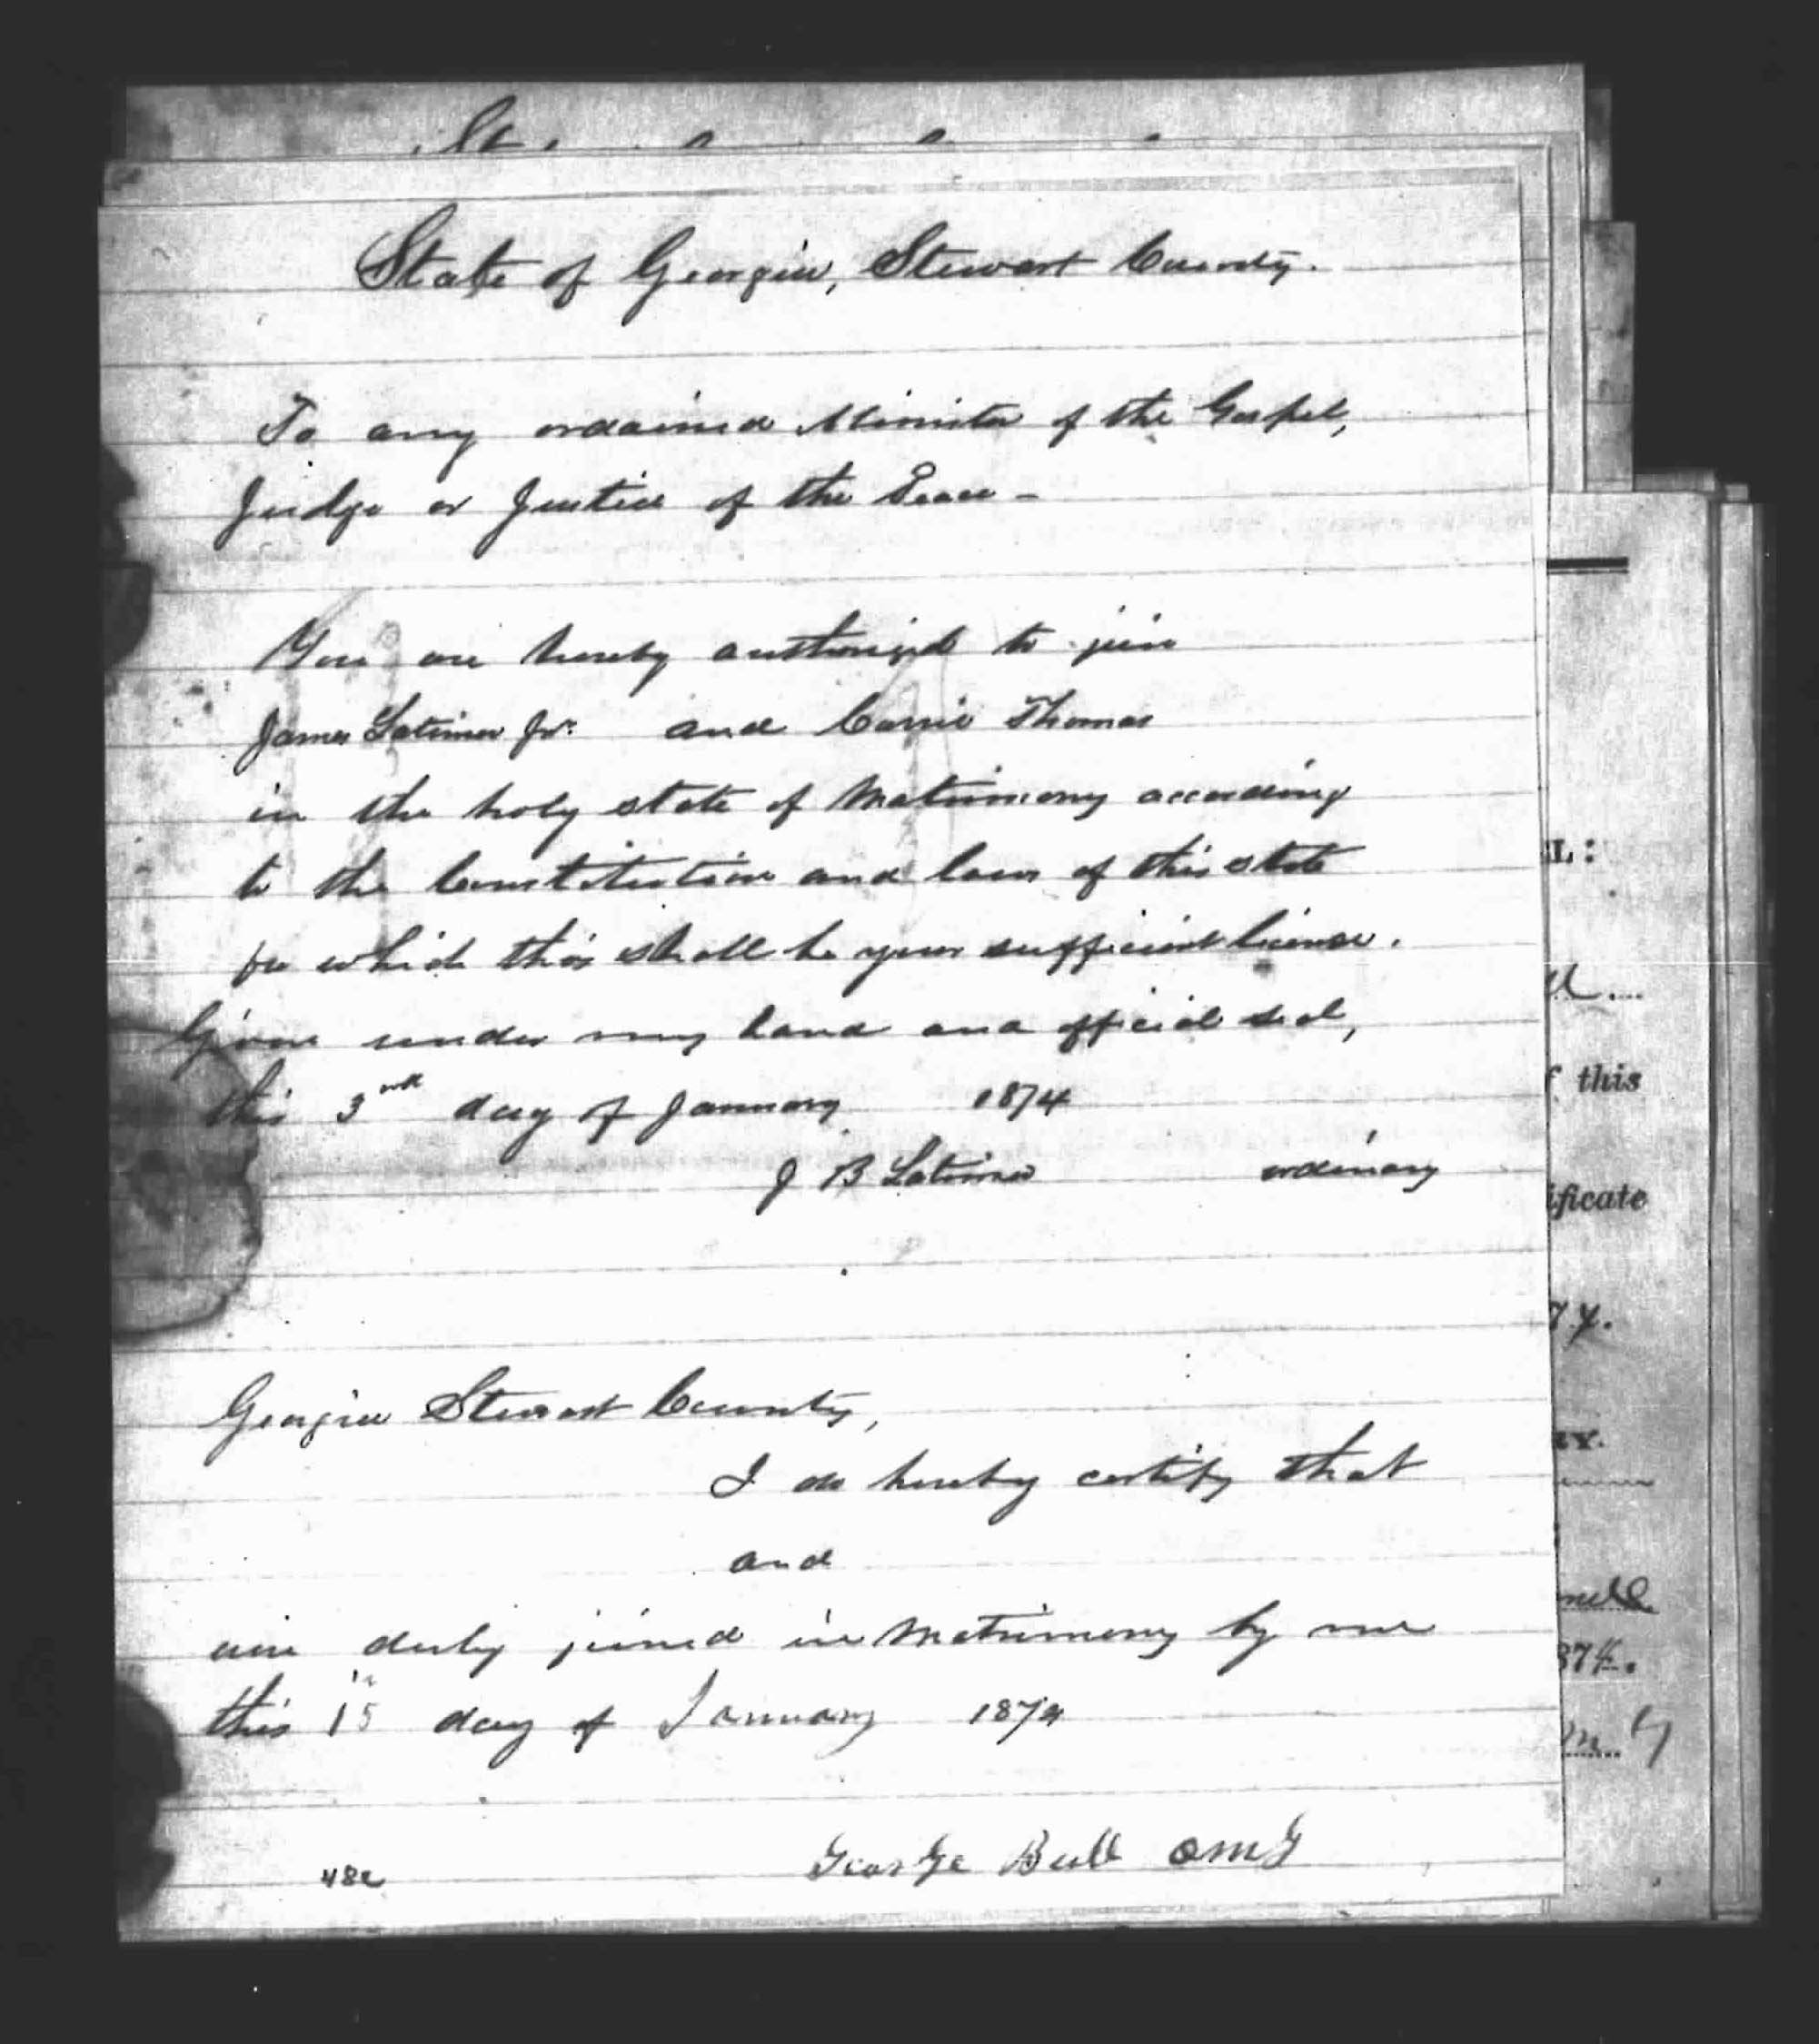 State of Georgia, Stewart County.
To any ordained Minister of the Gospel,
Judge or Justice of the Peace -
You are hereby authorized to join
James Latimer Jr. and Carrie Thomas
in the holy state of Matrimony according
to the Constitution and laws of this state
for which this shall be your sufficient license.
Given under my hand and official seal,
this 3rd day of January 1874
J B Latimer ordinary
Georgia Stewart County,
I do hereby certify that
and
were duly joined in Matrimony by me
this 15 day of January 1874
George Bull OMG
L:
f this
ificate
7.4.
RY.
874.